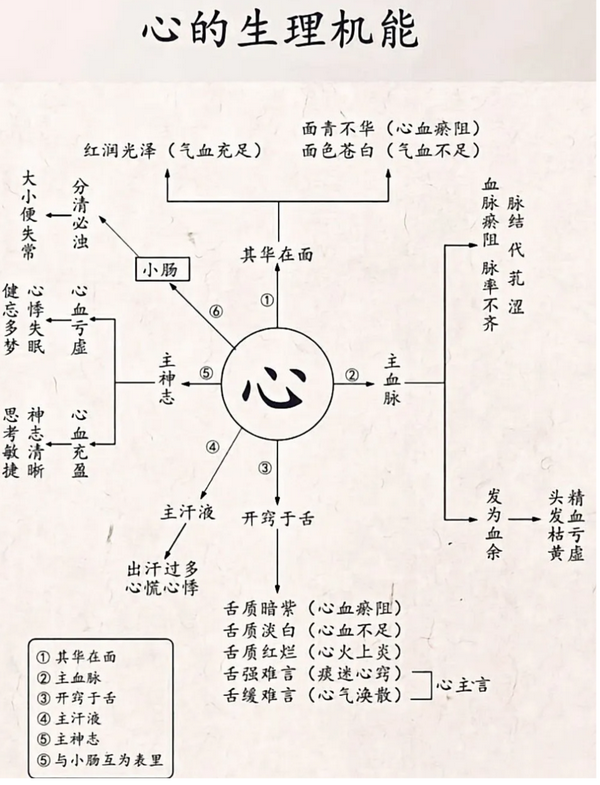 心的生理机能
面青不华（心血瘀阻）
红润光泽（气血充足）
面色苍白（气血不足）
大小便失常
分清必浊
小肠
其华在面
①
⑥
血脉瘀阻 脉率不齐
脉结代乳涩
心血亏虚
心悸失眠
健忘多梦
主神志
⑤
心
②
主血脉
心血充盈
神志清晰
思考敏捷
④
③
主汗液
开窍于舌
发为血余
精血亏虚
头发枯黄
出汗过多
心慌心悸
舌质暗紫（心血瘀阻）
舌质淡白（心血不足）
舌质红烂（心火上炎）
舌强难言（痰迷心窍）
舌缓难言（心气涣散）
心主言
① 其华在面
② 主血脉
③ 开窍于舌
④ 主汗液
⑤ 主神志
⑤ 与小肠互为表里